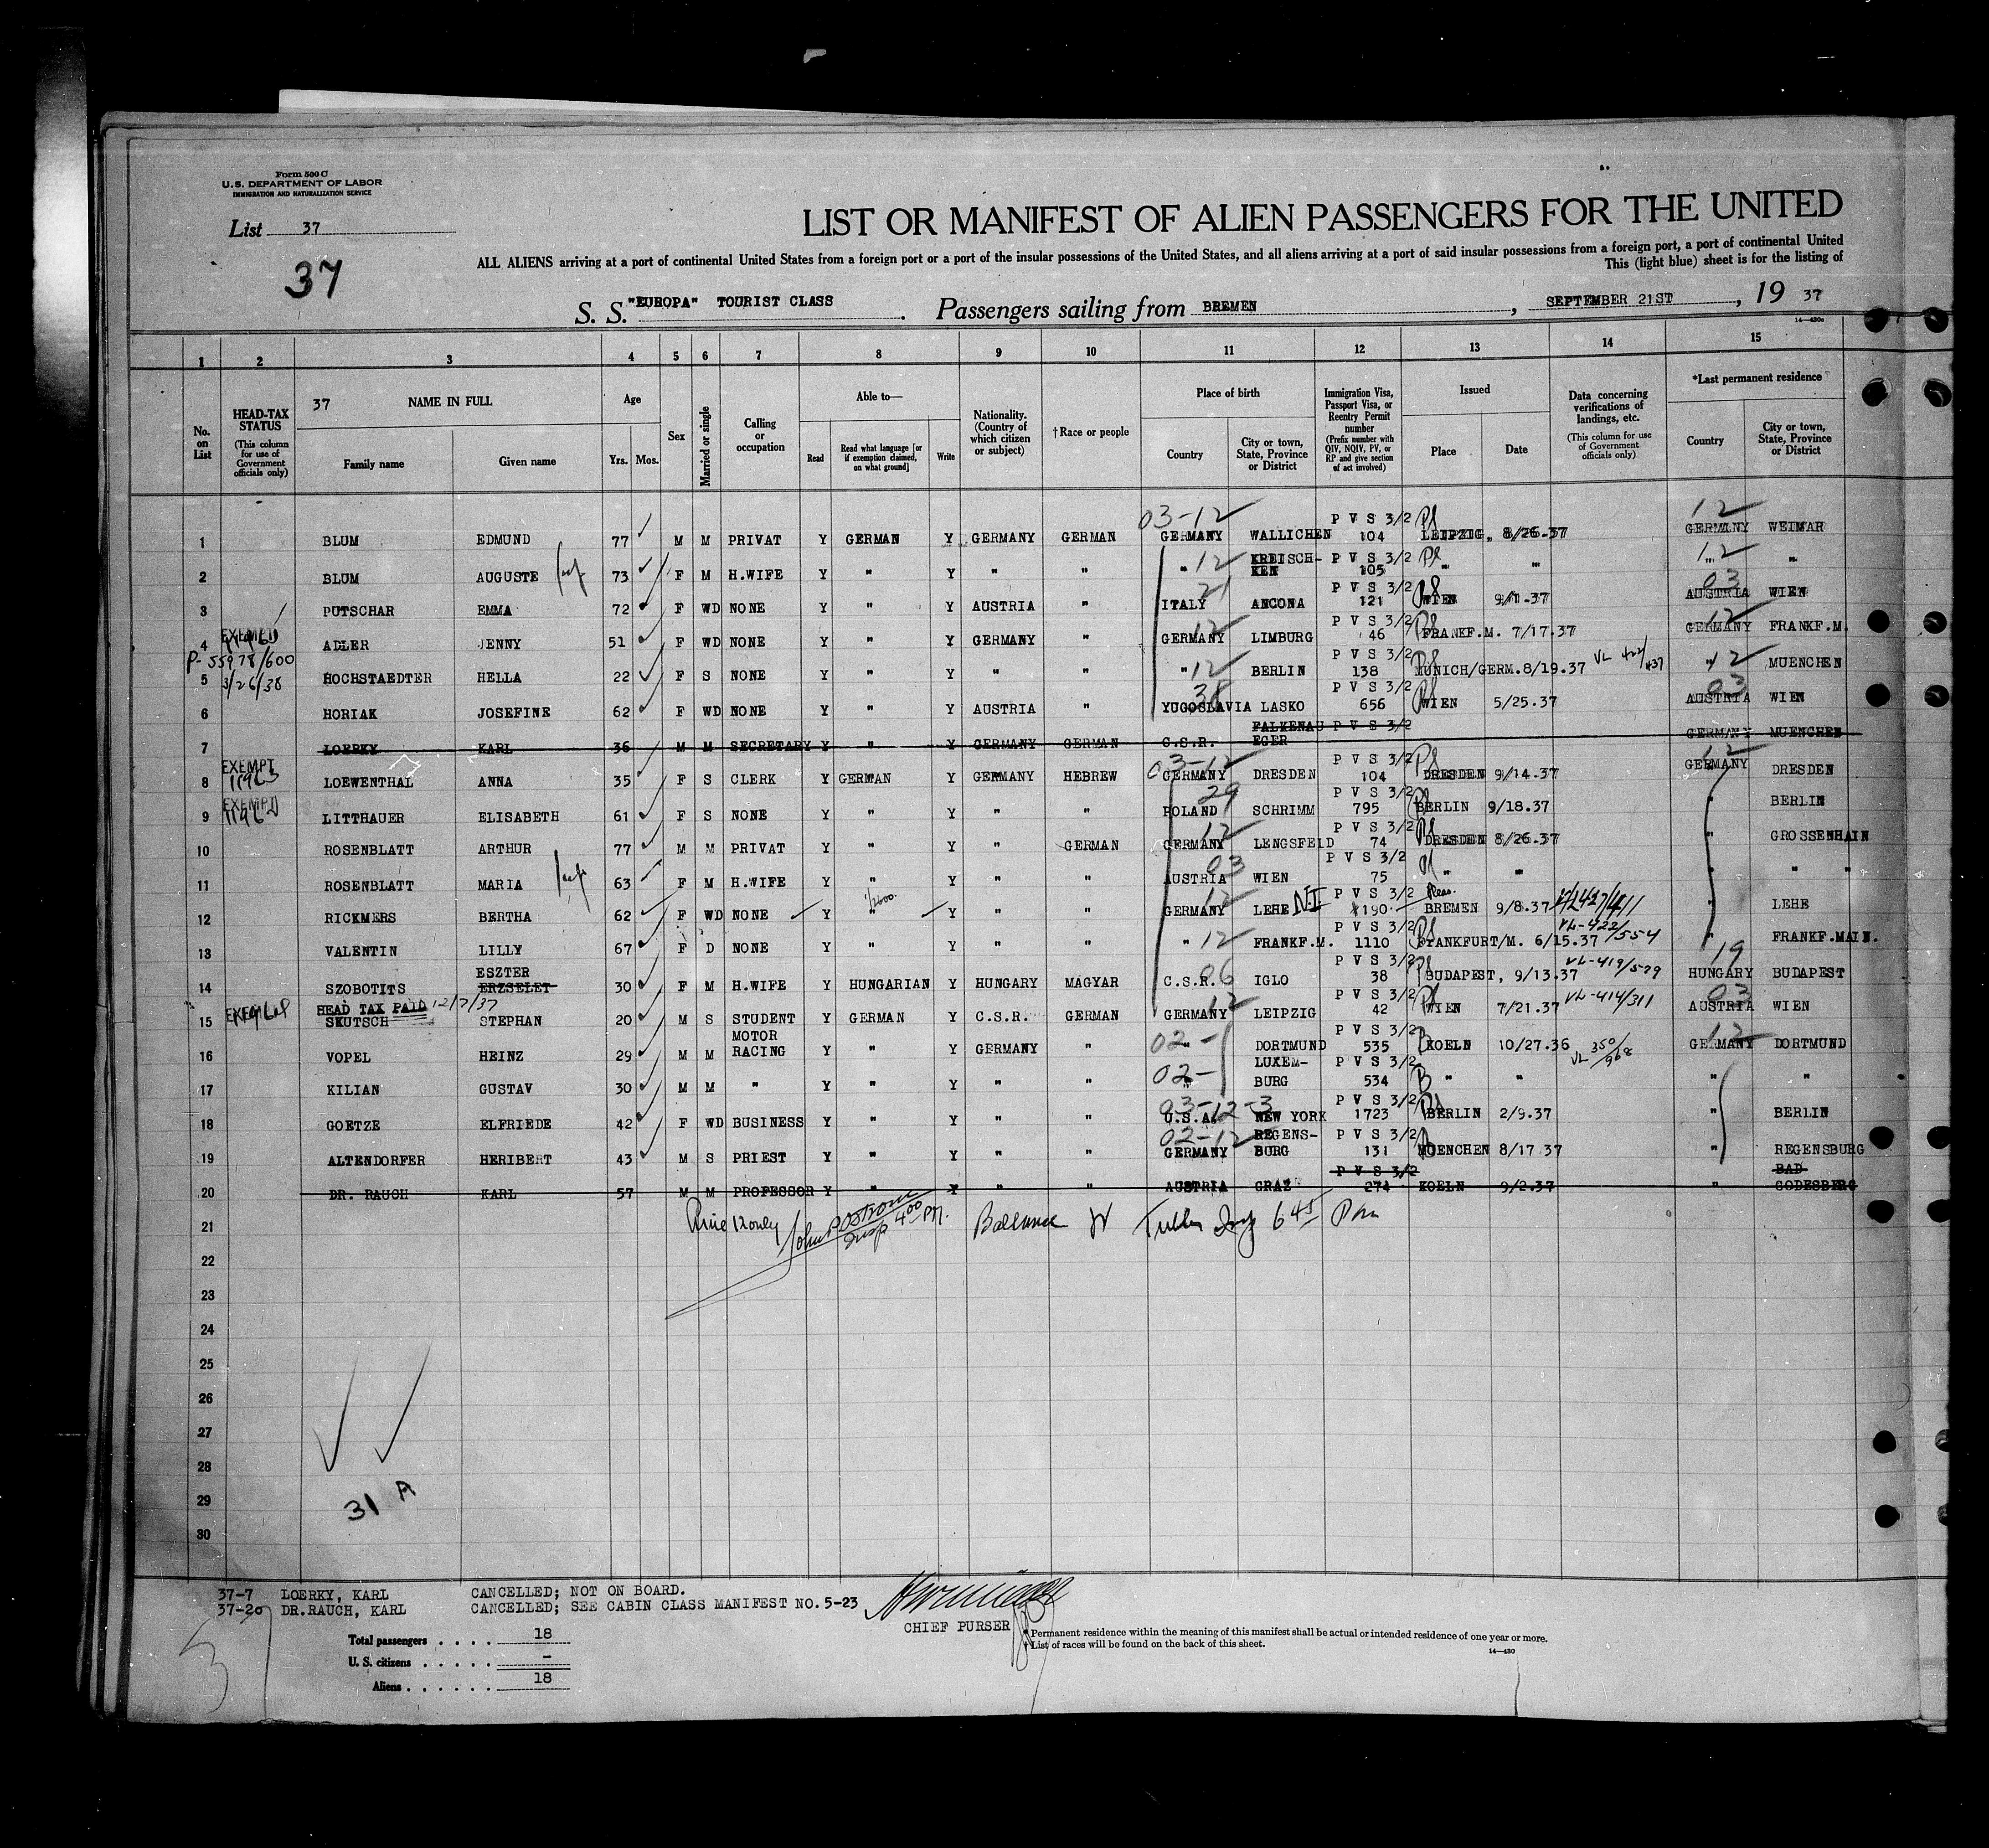 Form 500 C
U.S. DEPARTMENT OF LABOR
IMMIGRATION AND NATURALIZATION SERVICE
List 37
37
LIST OR MANIFEST OF ALIEN PASSENGERS FOR THE UNITED
ALL ALIENS arriving at a port of continental United States from a foreign port or a port of the insular possessions of the United States, and all aliens arriving at a port of said insular possessions from a foreign port, a port of continental United
This (light blue) sheet is for the listing of
S. S. "EUROPA" TOURIST CLASS. Passengers sailing from BREMEN, SEPTEMBER 21ST, 19 37
14—430a
1 2 3 4 5 6 7 8 9 10 11 12 13 14 15
No. on List
HEAD-TAX STATUS (This column for use of Government officials only)
37 NAME IN FULL
Family name Given name
Age Yrs. Mos.
Sex
Married or single
Calling or occupation
Able to— Read Read what language [or if exemption claimed, on what ground] Write
Nationality. (Country of which citizen or subject)
†Race or people
Place of birth Country City or town, State, Province or District
Immigration Visa, Passport Visa, or Reentry Permit number (Prefix number with QIV, NQIV, PV, or RP and give section of act involved)
Issued Place Date
Data concerning verifications of landings, etc. (This column for use of Government officials only)
*Last permanent residence Country City or town, State, Province or District
03-12 P V S 3/2 12
1 BLUM EDMUND 77 M M PRIVAT Y GERMAN Y GERMANY GERMAN GERMANY WALLICHEN 104 LEIPZIG, 8/26.37 GERMANY WEIMAR
2 BLUM AUGUSTE 73 F M H.WIFE Y " Y " " " 12 KREISCH-KEN P V S 3/2 105 " " 12 " "
3 PUTSCHAR EMMA 72 F WD NONE Y " Y AUSTRIA " ITALY 21 ANCONA P V S 3/2 121 WIEN 9/1.37 03 AUSTRIA WIEN
4 EXEMPT ADLER JENNY 51 F WD NONE Y " Y GERMANY " GERMANY 12 LIMBURG P V S 3/2 46 FRANKF.M. 7/17.37 12 GERMANY FRANKF.M.
P-55978/600
3/26/38
5 HOCHSTAEDTER HELLA 22 F S NONE Y " Y " " " 12 BERLIN P V S 3/2 138 MUNICH/GERM. 8/19.37 VL 422/437 " 12 MUENCHEN
6 HORIAK JOSEFINE 62 F WD NONE Y " Y AUSTRIA " YUGOSLAVIA 38 LASKO P V S 3/2 656 WIEN 5/25.37 03 AUSTRIA WIEN
7 LOERKY KARL 36 M M SECRETARY Y " Y GERMANY GERMAN C.S.R. FALKENAU EGER P V S 3/2 GERMANY MUENCHEN
8 EXEMPT 11963 LOEWENTHAL ANNA 35 F S CLERK Y GERMAN Y GERMANY HEBREW 03-12 GERMANY DRESDEN P V S 3/2 104 DRESDEN 9/14.37 12 GERMANY DRESDEN
9 EXEMPT LITTHAUER ELISABETH 61 F S NONE Y " Y " " POLAND 29 SCHRIMM P V S 3/2 795 BERLIN 9/18.37 " BERLIN
10 ROSENBLATT ARTHUR 77 M M PRIVAT Y " Y " GERMAN GERMANY 12 LENGSFELD P V S 3/2 74 DRESDEN 8/26.37 " GROSSENHAIN
11 ROSENBLATT MARIA 63 F M H.WIFE Y " Y " " AUSTRIA 03 WIEN P V S 3/2 75 " " " "
12 RICKMERS BERTHA 62 F WD NONE Y " Y " " GERMANY 12 LEHE P V S 3/2 190 BREMEN 9/8.37 " LEHE
13 VALENTIN LILLY 67 F D NONE Y " Y " " " 12 FRANKF.M. P V S 3/2 1110 FRANKFURT/M. 6/15.37 VL-422/554 " FRANKF.MAIN.
14 SZOBOTITS ESZTER ERZSELET 30 F M H.WIFE Y HUNGARIAN Y HUNGARY MAGYAR C.S.R. 06 IGLO P V S 3/2 38 BUDAPEST, 9/13.37 VL-419/579 19 HUNGARY BUDAPEST
HEAD TAX PAID 12/7/37
15 SKUTSCH STEPHAN 20 M S STUDENT Y GERMAN Y C.S.R. GERMAN GERMANY 12 LEIPZIG P V S 3/2 42 WIEN 7/21.37 VL-414/311 03 AUSTRIA WIEN
16 VOPEL HEINZ 29 M M MOTOR RACING Y " Y GERMANY " 02- " DORTMUND P V S 3/2 535 KOELN 10/27.36 VL 350/968 12 GERMANY DORTMUND
17 KILIAN GUSTAV 30 M M " Y " Y " " 02- " LUXEM-BURG P V S 3/2 534 " " " "
18 GOETZE ELFRIEDE 42 F WD BUSINESS Y " Y " " 03-12-3 U.S.A. NEW YORK P V S 3/2 1723 BERLIN 2/9.37 " BERLIN
19 ALTENDORFER HERIBERT 43 M S PRIEST Y " Y " " 02-12 GERMANY REGENS-BURG P V S 3/2 131 MUENCHEN 8/17.37 " REGENSBURG
20 DR. RAUCH KARL 57 M M PROFESSOR Y " Y AUSTRIA GRAZ P V S 3/2 274 KOELN 9/2.37 " BAD GODESBERG
21
22
23
24
25
26
27
28
29
30
31 A
37-7 LOERKY, KARL CANCELLED; NOT ON BOARD.
37-20 DR.RAUCH, KARL CANCELLED; SEE CABIN CLASS MANIFEST NO. 5-23
CHIEF PURSER
Total passengers . . . . 18
U. S. citizens . . . . . –
Aliens . . . . . . 18
*Permanent residence within the meaning of this manifest shall be actual or intended residence of one year or more.
†List of races will be found on the back of this sheet.
14—430
37